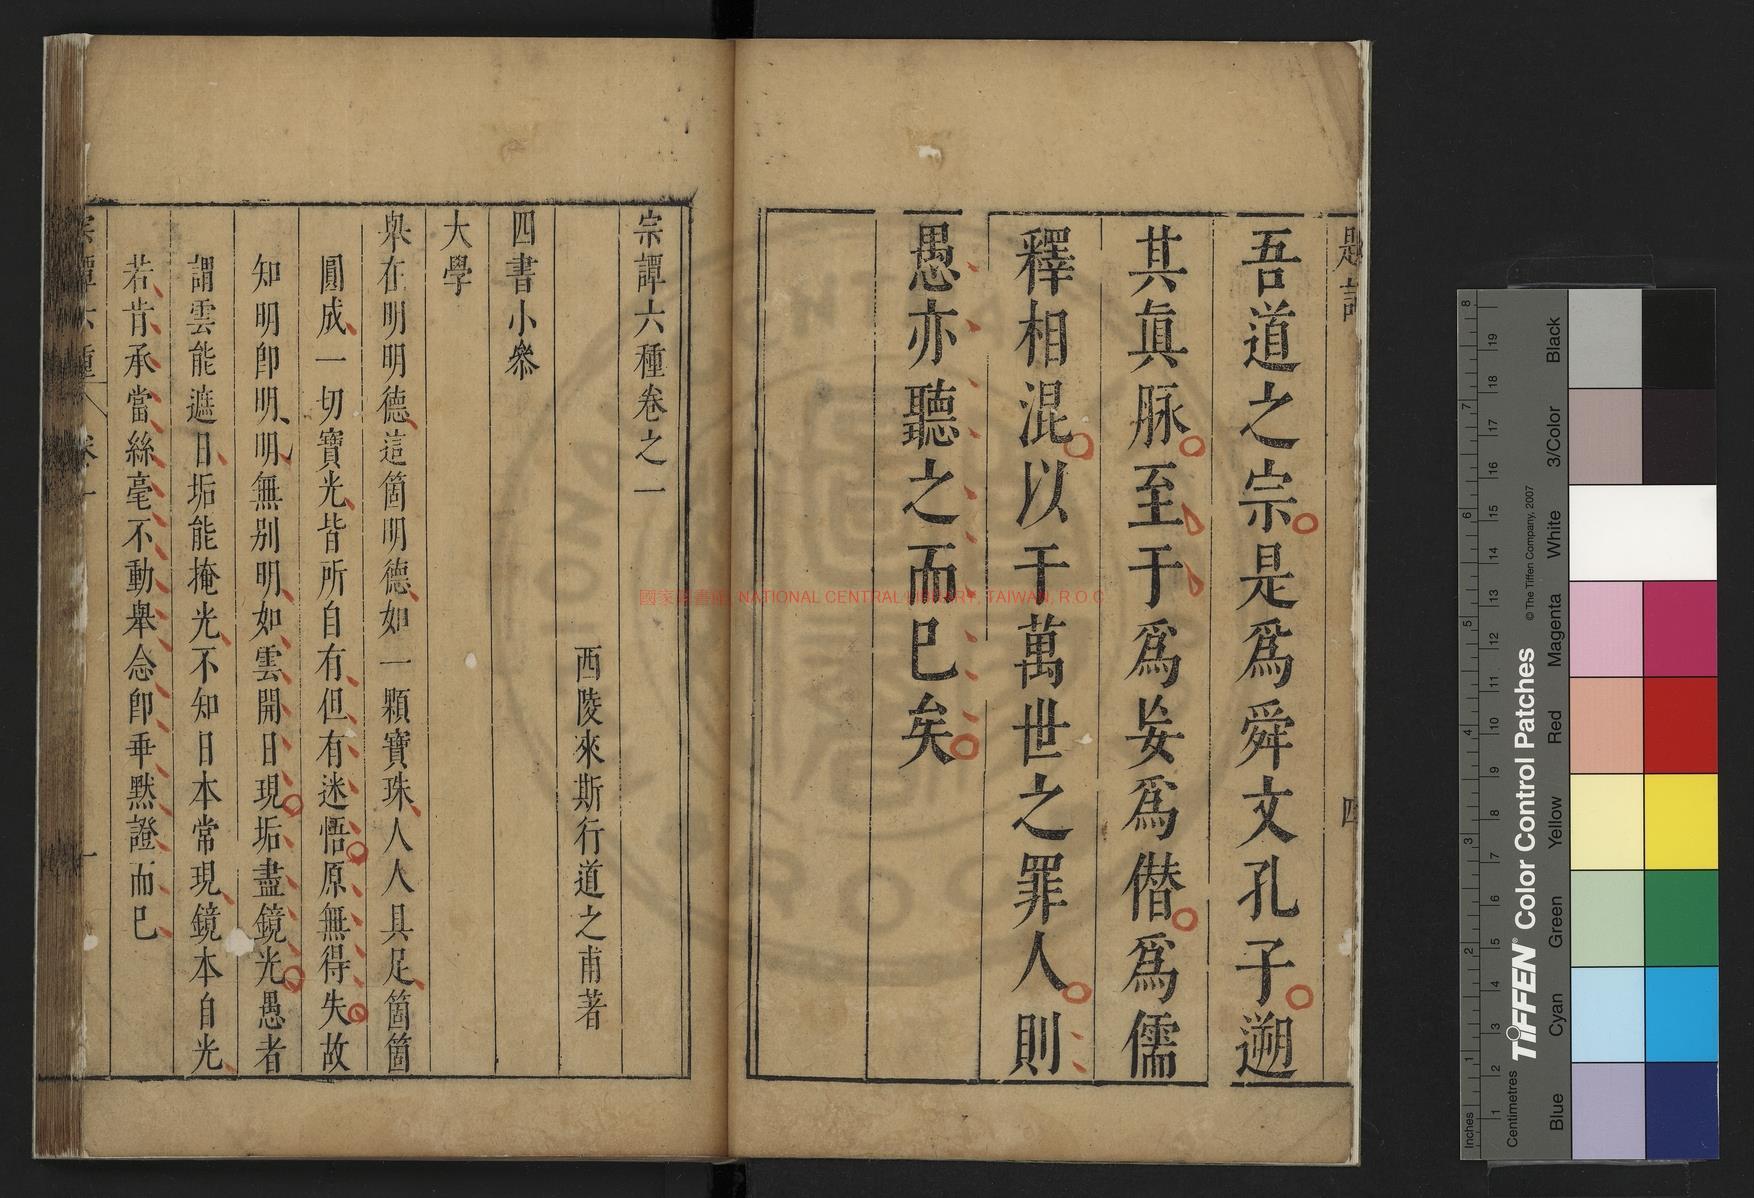 吾道之宗是爲舜文孔子遡
其眞脉至于爲妄爲僭爲儒
釋相混以于萬世之罪人則
愚亦聽之而已矣
四
宗譚六種卷之一
西陵來斯行道之甫著
四書小叅
大學
舉在明明德這箇明德如一顆寶珠人人具足箇箇
圓成一切寶光皆所自有但有迷悟原無得失故
知明卽明明無別明如雲開日現垢盡鏡光愚者
謂雲能遮日垢能掩光不知日本常現鏡本自光
若肯承當絲毫不動舉念卽乖黙證而已
國家圖書館, NATIONAL CENTRAL LIBRARY, TAIWAN, R.O.C
TIFFEN® Color Control Patches
© The Tiffen Company, 2007
Inches
Centimetres
Blue
Cyan
Green
Yellow
Red
Magenta
White
3/Color
Black